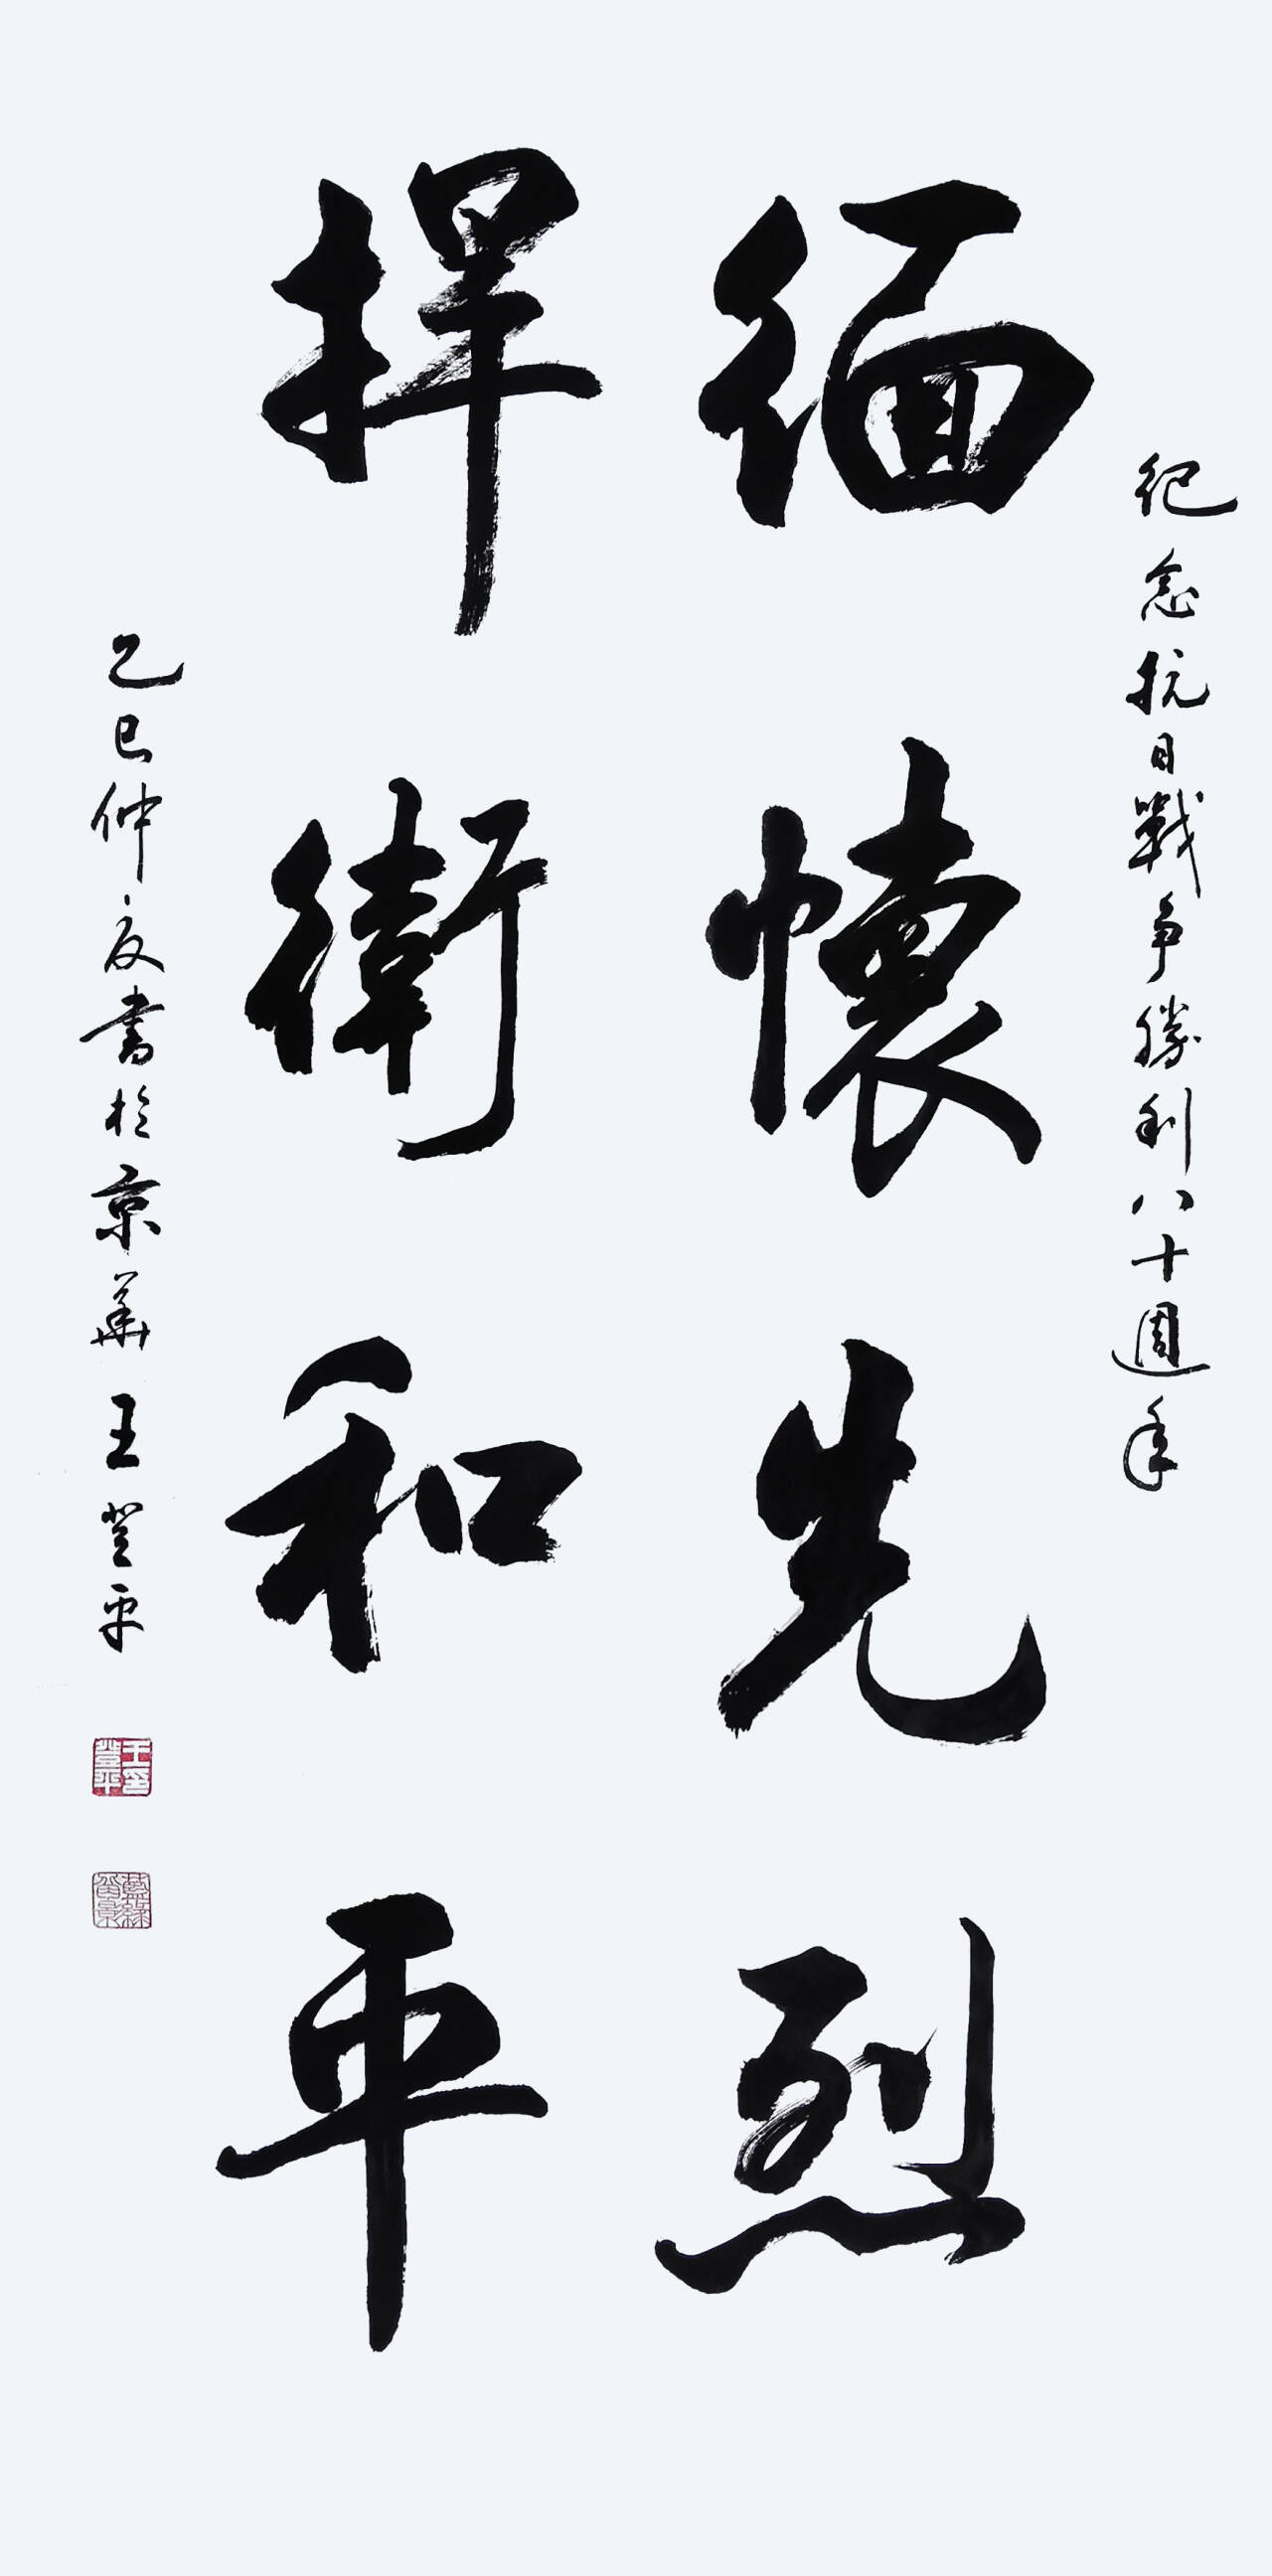 紀念抗日戰争勝利八十週年
緬懷先烈
捍衛和平
乙巳仲夏書於京華 王登平
王登平印